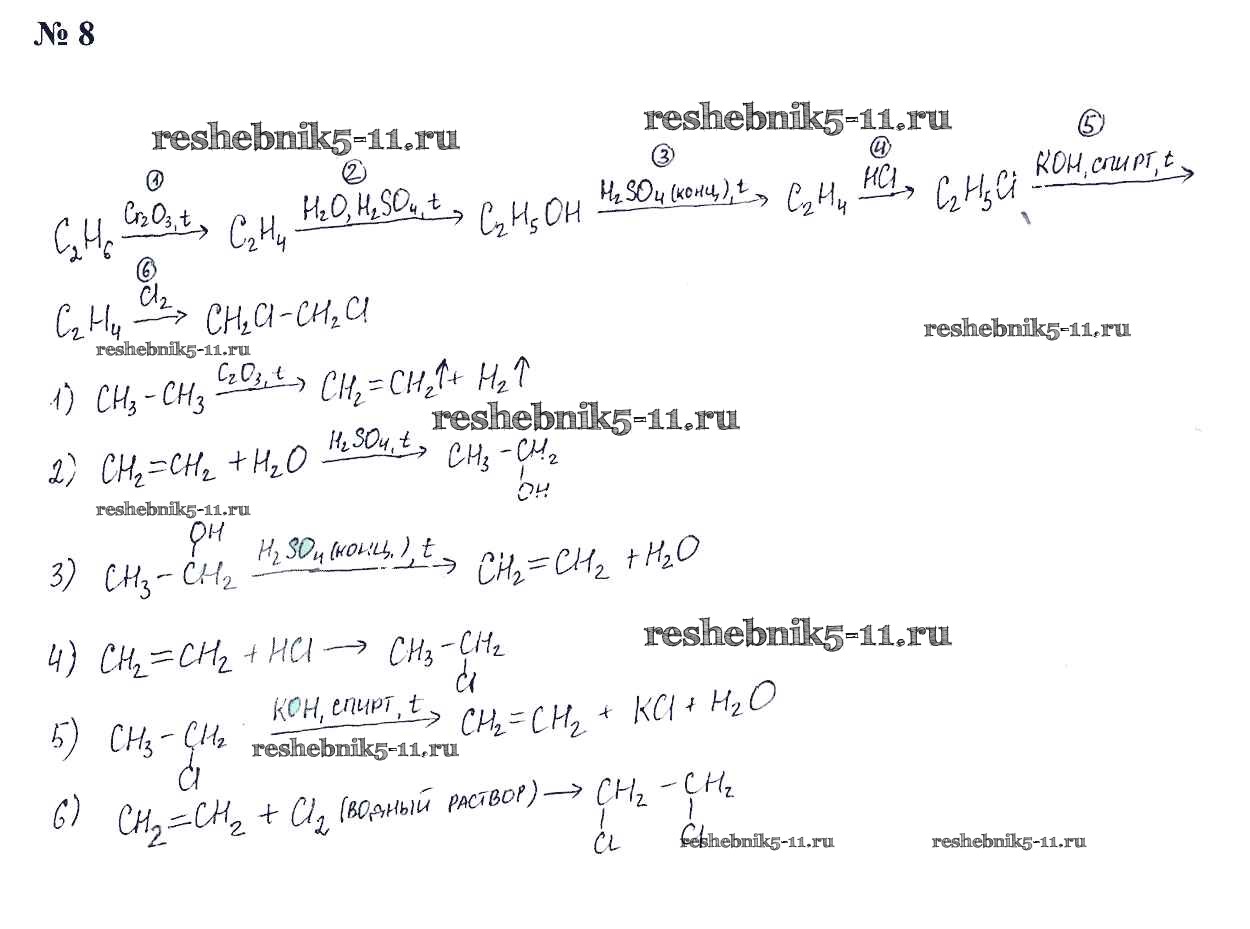 № 8
reshebnik5-11.ru reshebnik5-11.ru
① ② ③ ④ ⑤
C₂H₆ —Cr₂O₃, t→ C₂H₄ —H₂O, H₂SO₄, t→ C₂H₅OH —H₂SO₄ (конц), t→ C₂H₄ —HCl→ C₂H₅Cl —KOH, СПИРТ, t→
⑥
C₂H₄ —Cl₂→ CH₂Cl-CH₂Cl
reshebnik5-11.ru reshebnik5-11.ru
1) CH₃-CH₃ —C₂O₃, t→ CH₂=CH₂↑ + H₂↑
reshebnik5-11.ru
2) CH₂=CH₂ + H₂O —H₂SO₄, t→ CH₃-CH₂
OH
reshebnik5-11.ru
OH
3) CH₃-CH₂ —H₂SO₄ (конц.), t→ CH₂=CH₂ + H₂O
reshebnik5-11.ru
4) CH₂=CH₂ + HCl → CH₃-CH₂
Cl
5) CH₃-CH₂ —KOH, СПИРТ, t→ CH₂=CH₂ + KCl + H₂O
reshebnik5-11.ru
Cl
6) CH₂=CH₂ + Cl₂ (ВОДНЫЙ РАСТВОР) → CH₂-CH₂
Cl Cl
reshebnik5-11.ru reshebnik5-11.ru